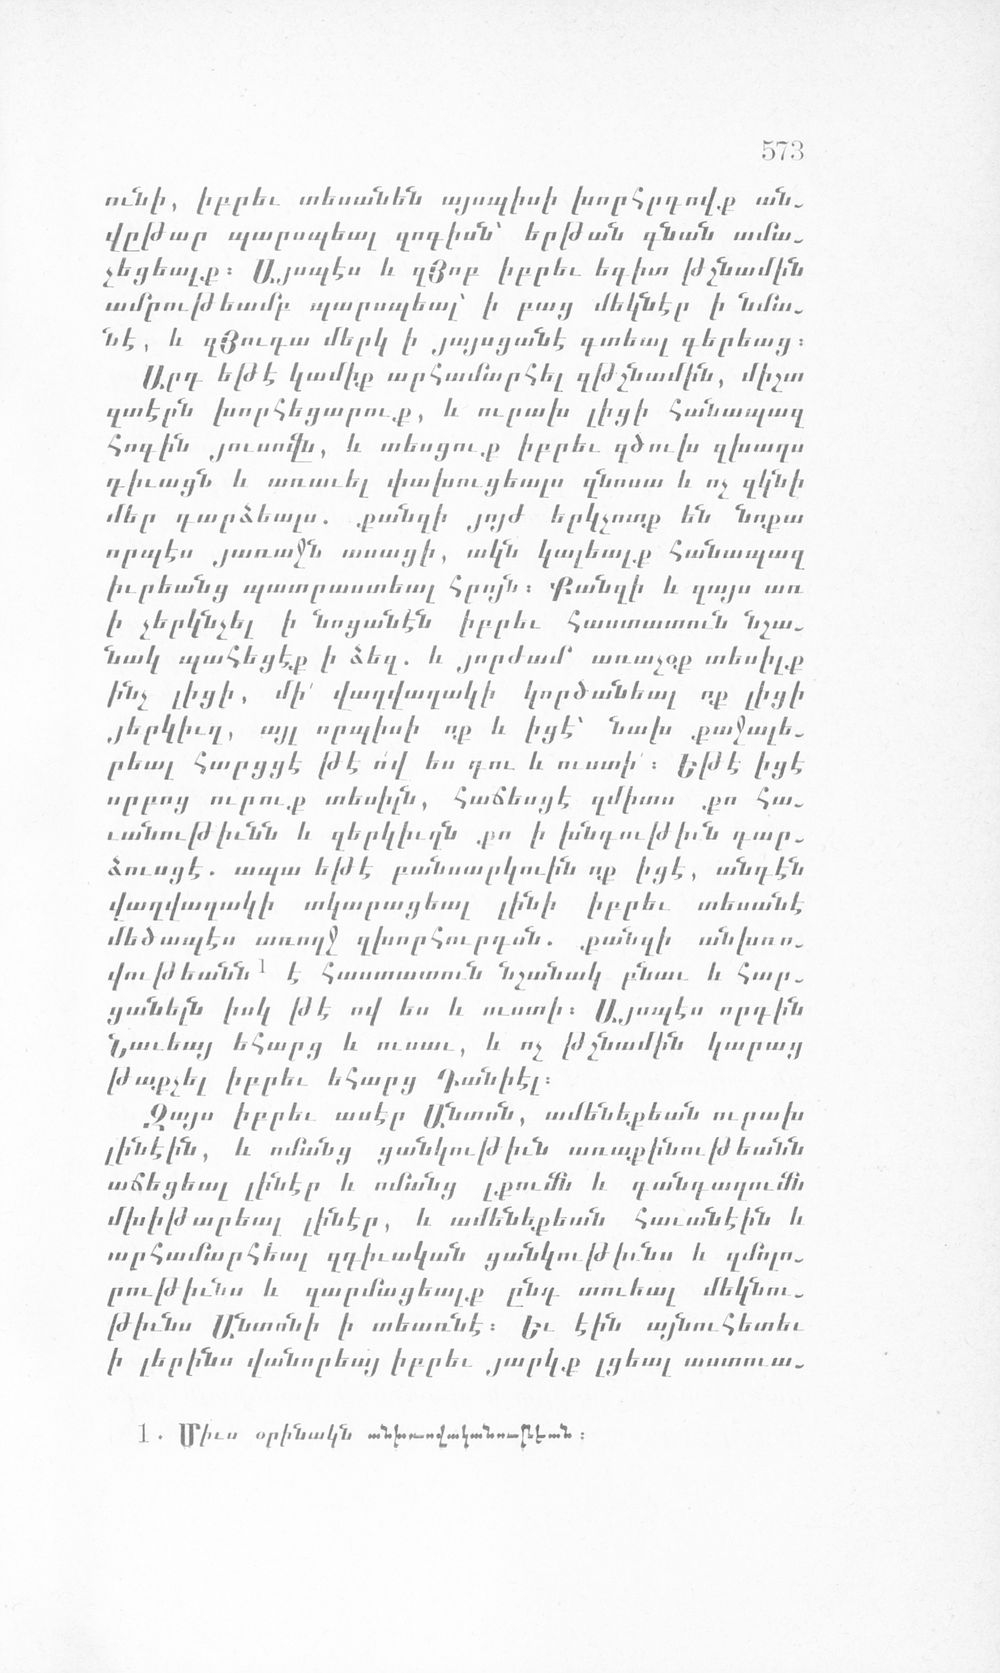 573
ունի, իբրեւ տեսանեն այսպիսի խորհրդովք ան-
վըթար պարսպեալ զոգիսն՝ երթան գնան ամա-
չեցեալք։ Այսպէս և զՅոբ իբրեւ եգիտ թշնամին
ամրութեամբ պարսպեալ՝ ի բաց մեկնէր ի նմա-
նէ, և զՅուդա մերկ ի յայսցանէ գտեալ գերեաց։
Արդ եթէ կամիք արհամարհել զթշնամին, միշտ
զտէրն խորհեցարուք, և ուրախ լիցի հանապազ
հոգին յուսովն, և տեսցուք իբրեւ զծուխ զխաղս
դիւացն և առաւել փախուցեալս զնոսա և ոչ զկնի
մեր դարձեալս. քանզի յոյժ երկչոտք են նոքա
որպէս յառաջն ասացի, ակն կալեալք հանապազ
իւրեանց պատրաստեալ հրոյն։ Քանզի և զայս առ
ի չերկնչել ի նոցանէն իբրեւ հաստատուն նշա-
նակ պահեցէք ի ձեզ. և յորժամ առաչօք տեսիլք
ինչ լիցի, մի՛ վաղվաղակի կործանեալ ոք լիցի
յերկիւղ, այլ որպիսի ոք և իցէ՝ նախ քաջալե-
րեալ հարցցէ թէ ո՛վ ես դու և ուստի՛։ Եթէ իցէ
սրբոց ուրուք տեսիլն, հաճեսցէ զմիտս քո հա-
ւանութիւնն և զերկիւղն քո ի խնդութիւն դար-
ձուսցէ. ապա եթէ բանսարկուին ոք իցէ, անդէն
վաղվաղակի տկարացեալ լինի իբրեւ տեսանէ
մեծապէս առողջ զխորհուրդսն. քանզի անխռո-
վութեանն¹ է հաստատուն նշանակ բնաւ և հար-
ցանելն իսկ թէ ով ես և ուստի։ Այսպէս որդին
Նաւեայ եհարց և ուսաւ, և ոչ թշնամին կարաց
թաքչել իբրեւ եհարց Դանիէլ։
Զայս իբրեւ ասէր Անտոն, ամենեքեան ուրախ
լինէին, և ոմանց ցանկութիւն առաքինութեանն
աճեցեալ լինէր և ոմանց լքումն և դանդաղումն
մխիթարեալ լինէր, և ամենեքեան հաւանէին և
արհամարհեալ զդիւական ցանկութիւնս և զմոլո-
րութիւնս և զարմացեալք ընդ տուեալ մեկնու-
թիւնս Անտոնի ի տեառնէ։ Եւ էին այնուհետեւ
ի լերինս վանորեայ իբրեւ յարկք լցեալ աստուա-
1. Միւս օրինակն անխռովականութեան։